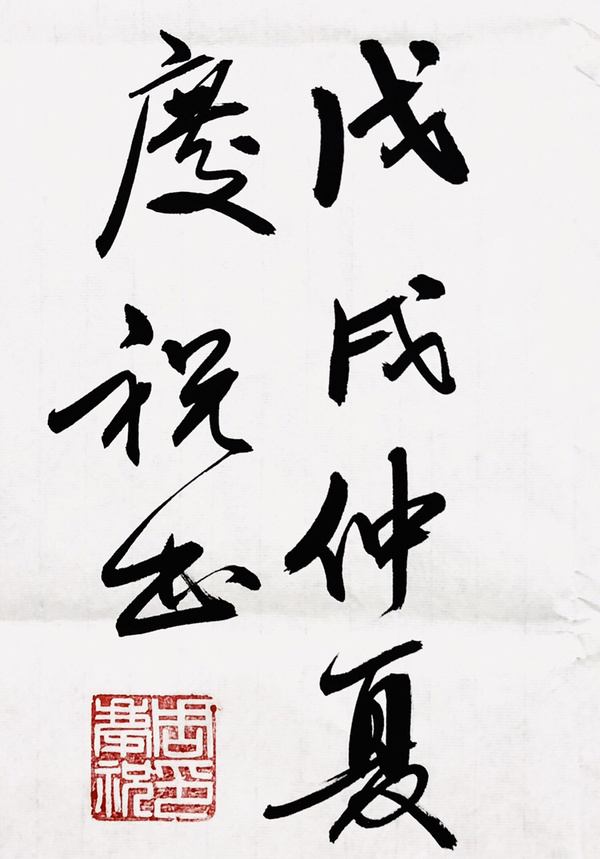 戊戌仲夏
慶祝書
周印
慶祝